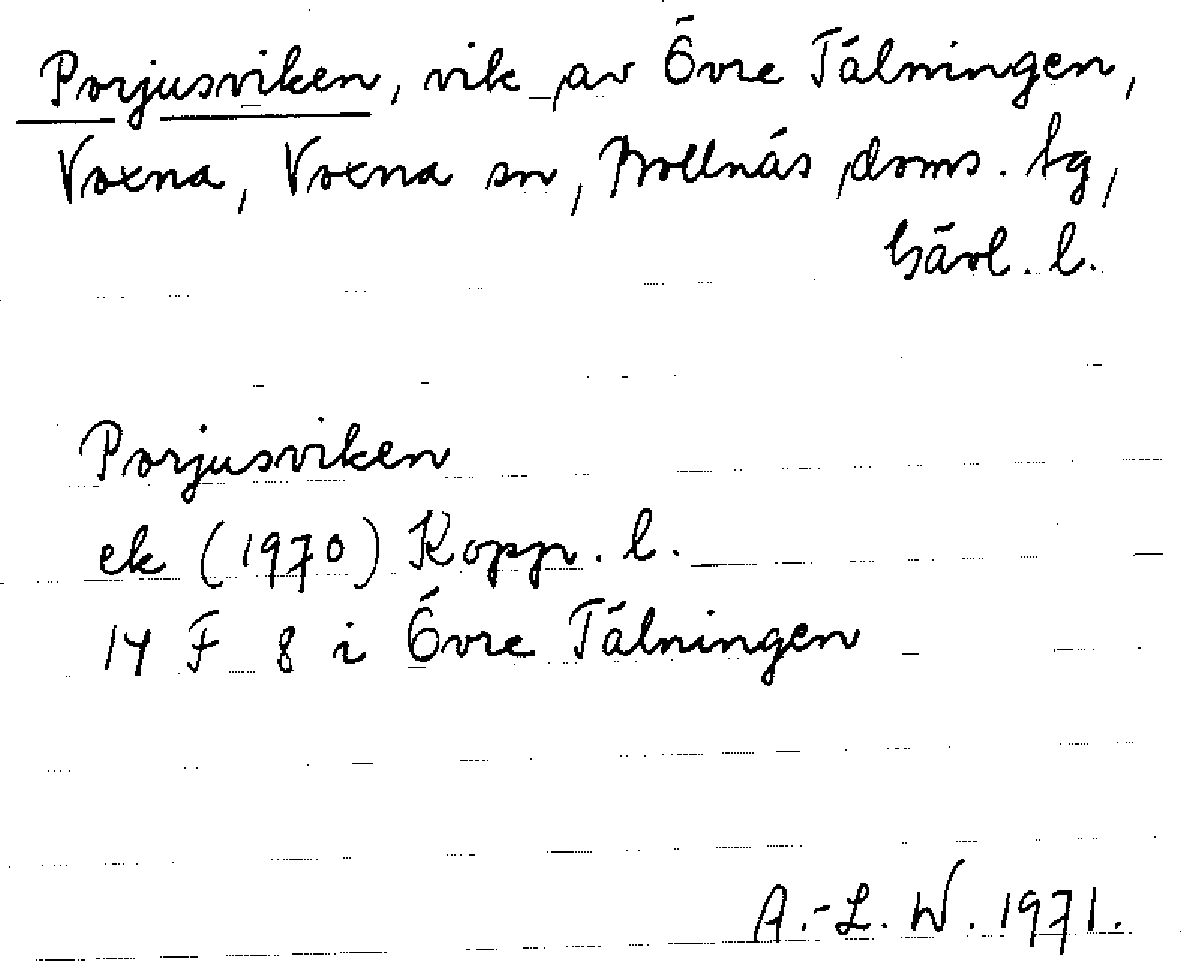 Porjusviken, vik av Övre Tälningen,
Voxna, Voxna sn, Bollnäs doms. tg,
Gävl. l.
Porjusviken
ek (1970) Kopp. l.
14 F 8 i Övre Tälningen
A.-L. W. 1971.